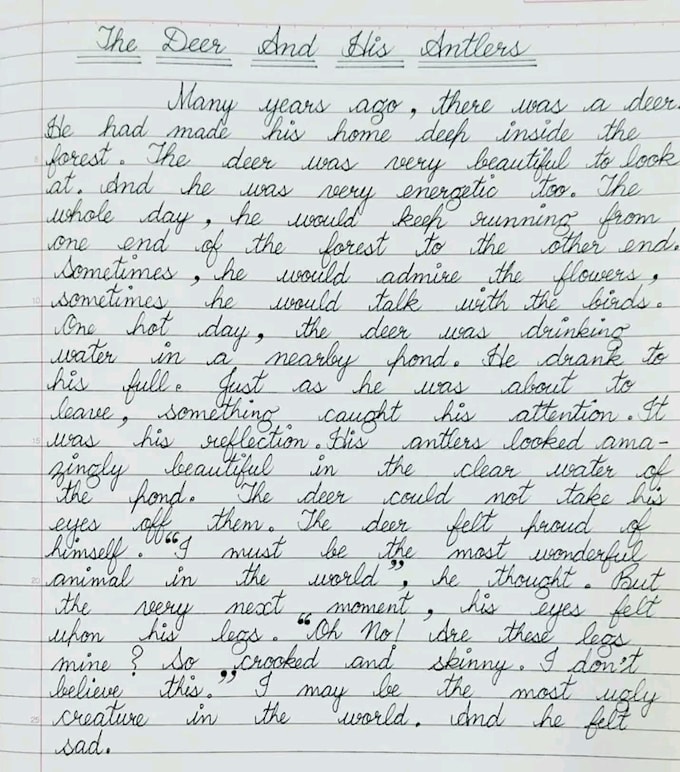 The Deer And His Antlers
Many years ago, there was a deer.
He had made his home deep inside the
forest. The deer was very beautiful to look
at. And he was very energetic too. The
whole day, he would keep running from
one end of the forest to the other end.
Sometimes, he would admire the flowers,
sometimes he would talk with the birds.
One hot day, the deer was drinking
water in a nearby pond. He drank to
his full. Just as he was about to
leave, something caught his attention. It
was his reflection. His antlers looked ama-
zingly beautiful in the clear water of
the pond. The deer could not take his
eyes off them. The deer felt proud of
himself. "I must be the most wonderful
animal in the world", he thought. But
the very next moment, his eyes felt
upon his legs. "Oh No! Are these legs
mine? So crooked and skinny. I don't
believe this." I may be the most ugly
creature in the world. And he felt
sad.